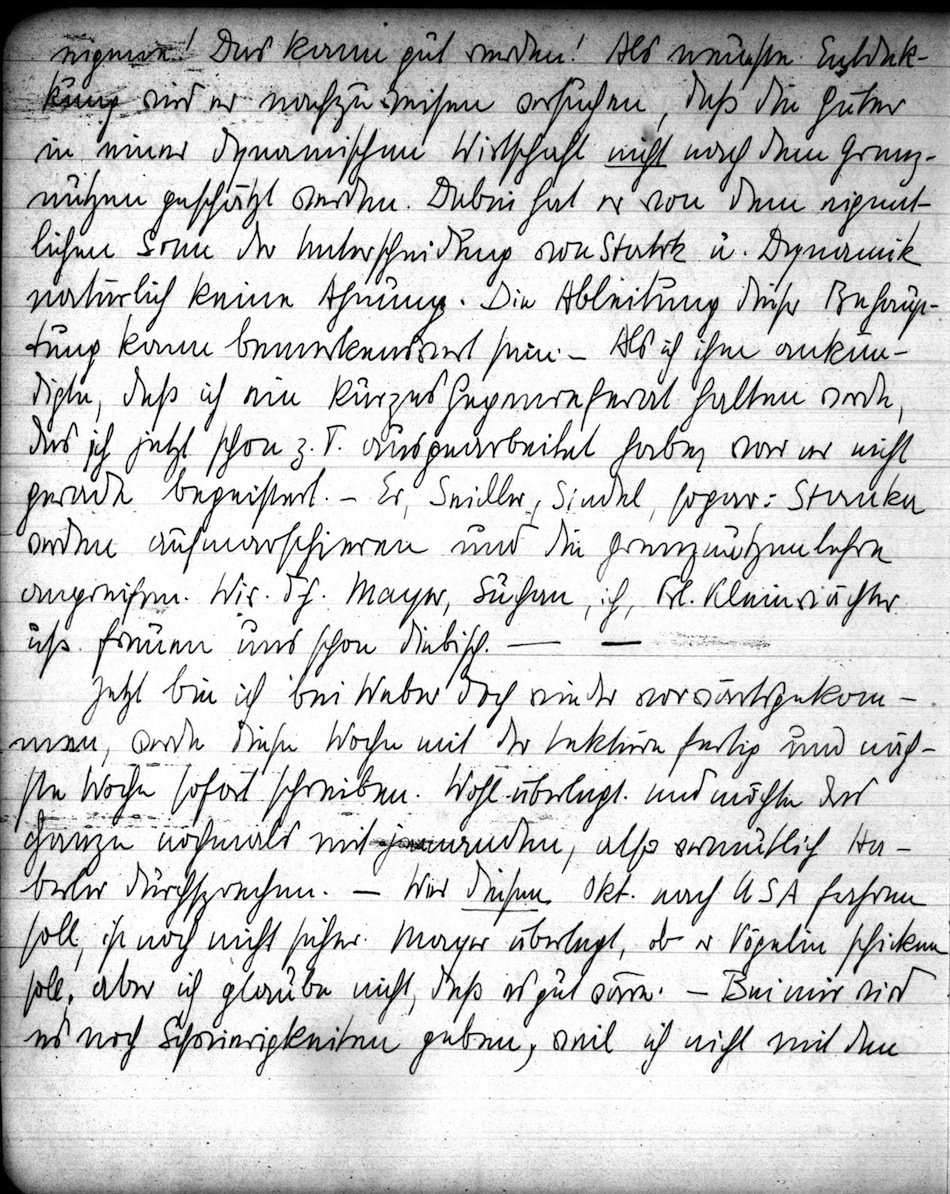 eigenen! Das kann gut werden! Als neueste Entdek-
kung wird er nachzuweisen versuchen, daß die Güter
in einer dynamischen Wirtschaft nicht nach dem Grenz-
nutzen geschätzt werden. Dabei hat er von dem eigent-
lichen Sinn der Unterscheidung von Statik u. Dynamik
natürlich keine Ahnung. Die Ableitung dieser Behaup-
tung kann bemerkenswert sein. – Als ich ihm ankün-
digte, daß ich ein kurzes Gegenreferat halten werde,
das ich jetzt schon z. T. ausgearbeitet habe, war er nicht
gerade begeistert. – Er, Seidler, Sindel, sogar: Stranka
werden aufmarschieren und die Grenznutzenlehre
angreifen. Wir. Dh. Mayer, Suchan, ich, Frl. Kleinwächter
usw. freuen uns schon diebisch. — —
Jetzt bin ich bei Weber doch wieder vorwärtsgekom-
men, werde diese Woche mit der Lektüre fertig und näch-
ste Woche sofort schreiben. Wohl überlegt. und möchte das
Ganze nochmals mit jemanden, also vermutlich Ha-
berler durchsprechen. — Wer diesen Okt. nach USA fahren
soll, ist noch nicht sicher. Mayer überlegt, ob er Vögelin schicken
soll, aber ich glaube nicht, daß es gut wäre. – Bei mir wird
es noch Schwierigkeiten geben, weil ich nicht mit den